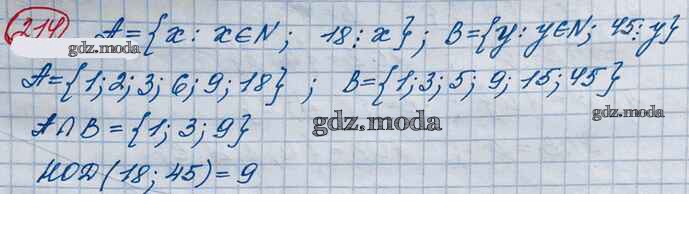 214 A={x: x∈N; 18⋮x}; B={y: y∈N; 45⋮y}
gdz.moda
A={1; 2; 3; 6; 9; 18}; B={1; 3; 5; 9; 15; 45}
A∩B={1; 3; 9}
gdz.moda
НОД(18; 45)=9
gdz.moda